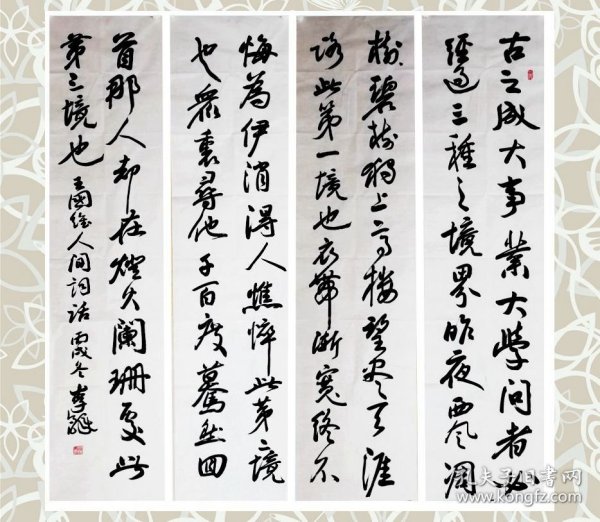 古之成大事業大學問者必
經過三種之境界昨夜西風凋
樹碧樹獨上高樓望盡天涯
路此第一境也衣帶漸寬終不
悔為伊消得人憔悴此第二境
也眾裏尋他千百度驀然回
首那人却在燈火闌珊處此
第三境也 王國維人間詞話 丙戌冬 李
孔夫子旧书网
www.kongfz.com